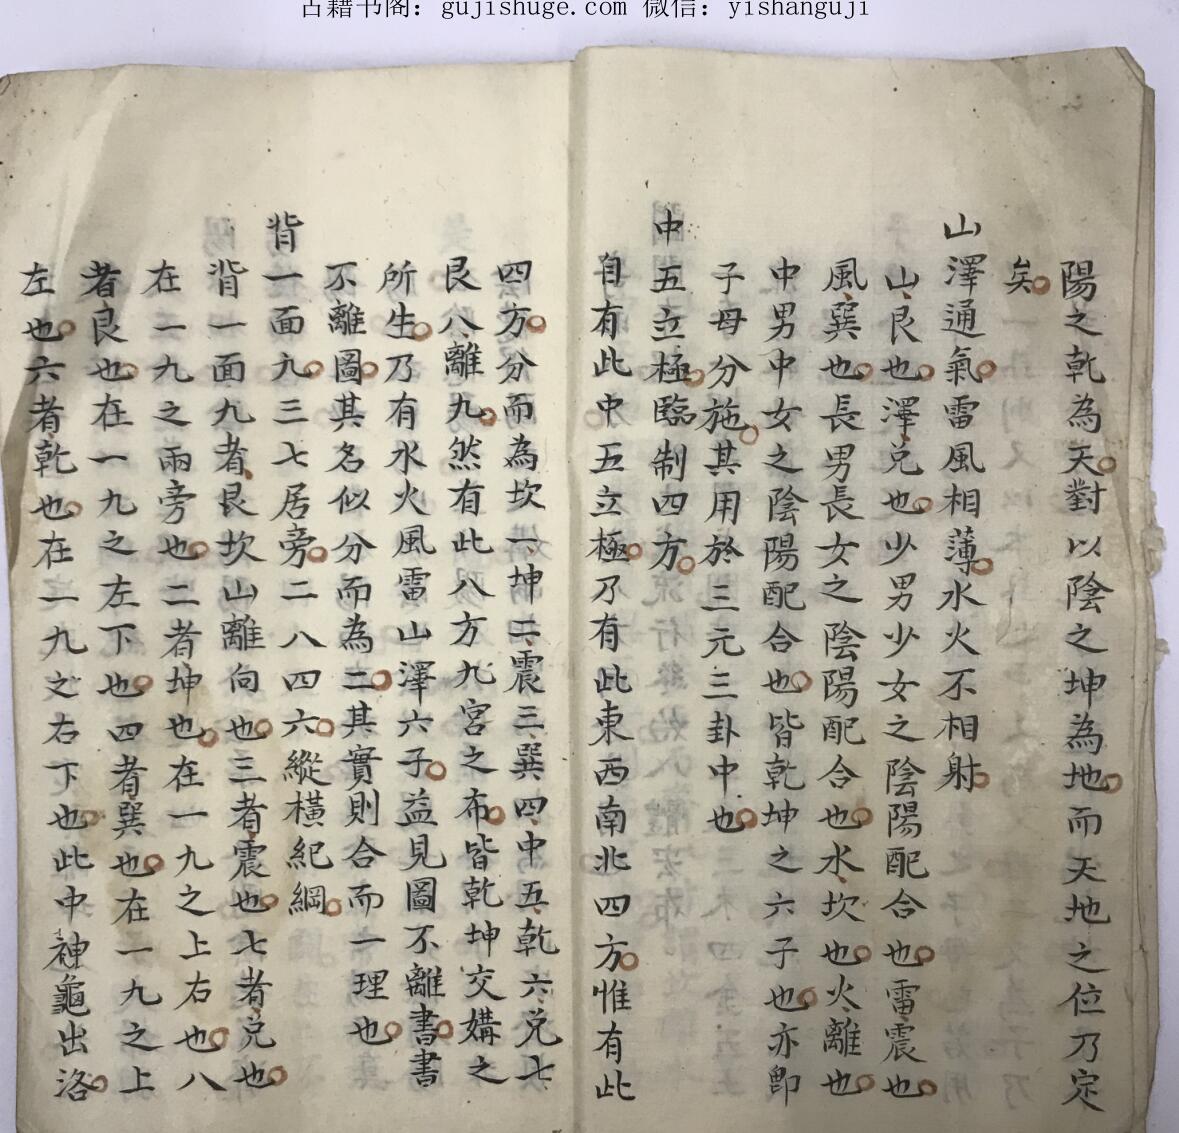 古籍书阁：gujishuge.com 微信：yishanguji
陽之乾為天對以陰之坤為地而天地之位乃定
矣
山澤通氣雷風相薄水火不相射
山艮也澤兑也少男少女之陰陽配合也雷震也
風巽也長男長女之陰陽配合也水坎也火離也
中男中女之陰陽配合也皆乾坤之六子也亦即
子母分施其用於三元三卦中也
中五立極臨制四方
自有此中五立極乃有此東西南北四方惟有此
四方分而為坎一坤二震三巽四中五乾六兑七
艮八離九然有此八方九宮之布皆乾坤交媾之
所生乃有水火風雷山澤六子益見圖不離書書
不離圖其名似分而為二其實則合而一理也
背一面九三七居旁二八四六縱橫紀綱
背一面九者艮坎山離向也三者震也七者兑也
在一九之兩旁也二者坤也在一九之上右也八
者艮也在一九之左下也四者巽也在一九之上
左也六者乾也在一九之右下也此中神龜出洛